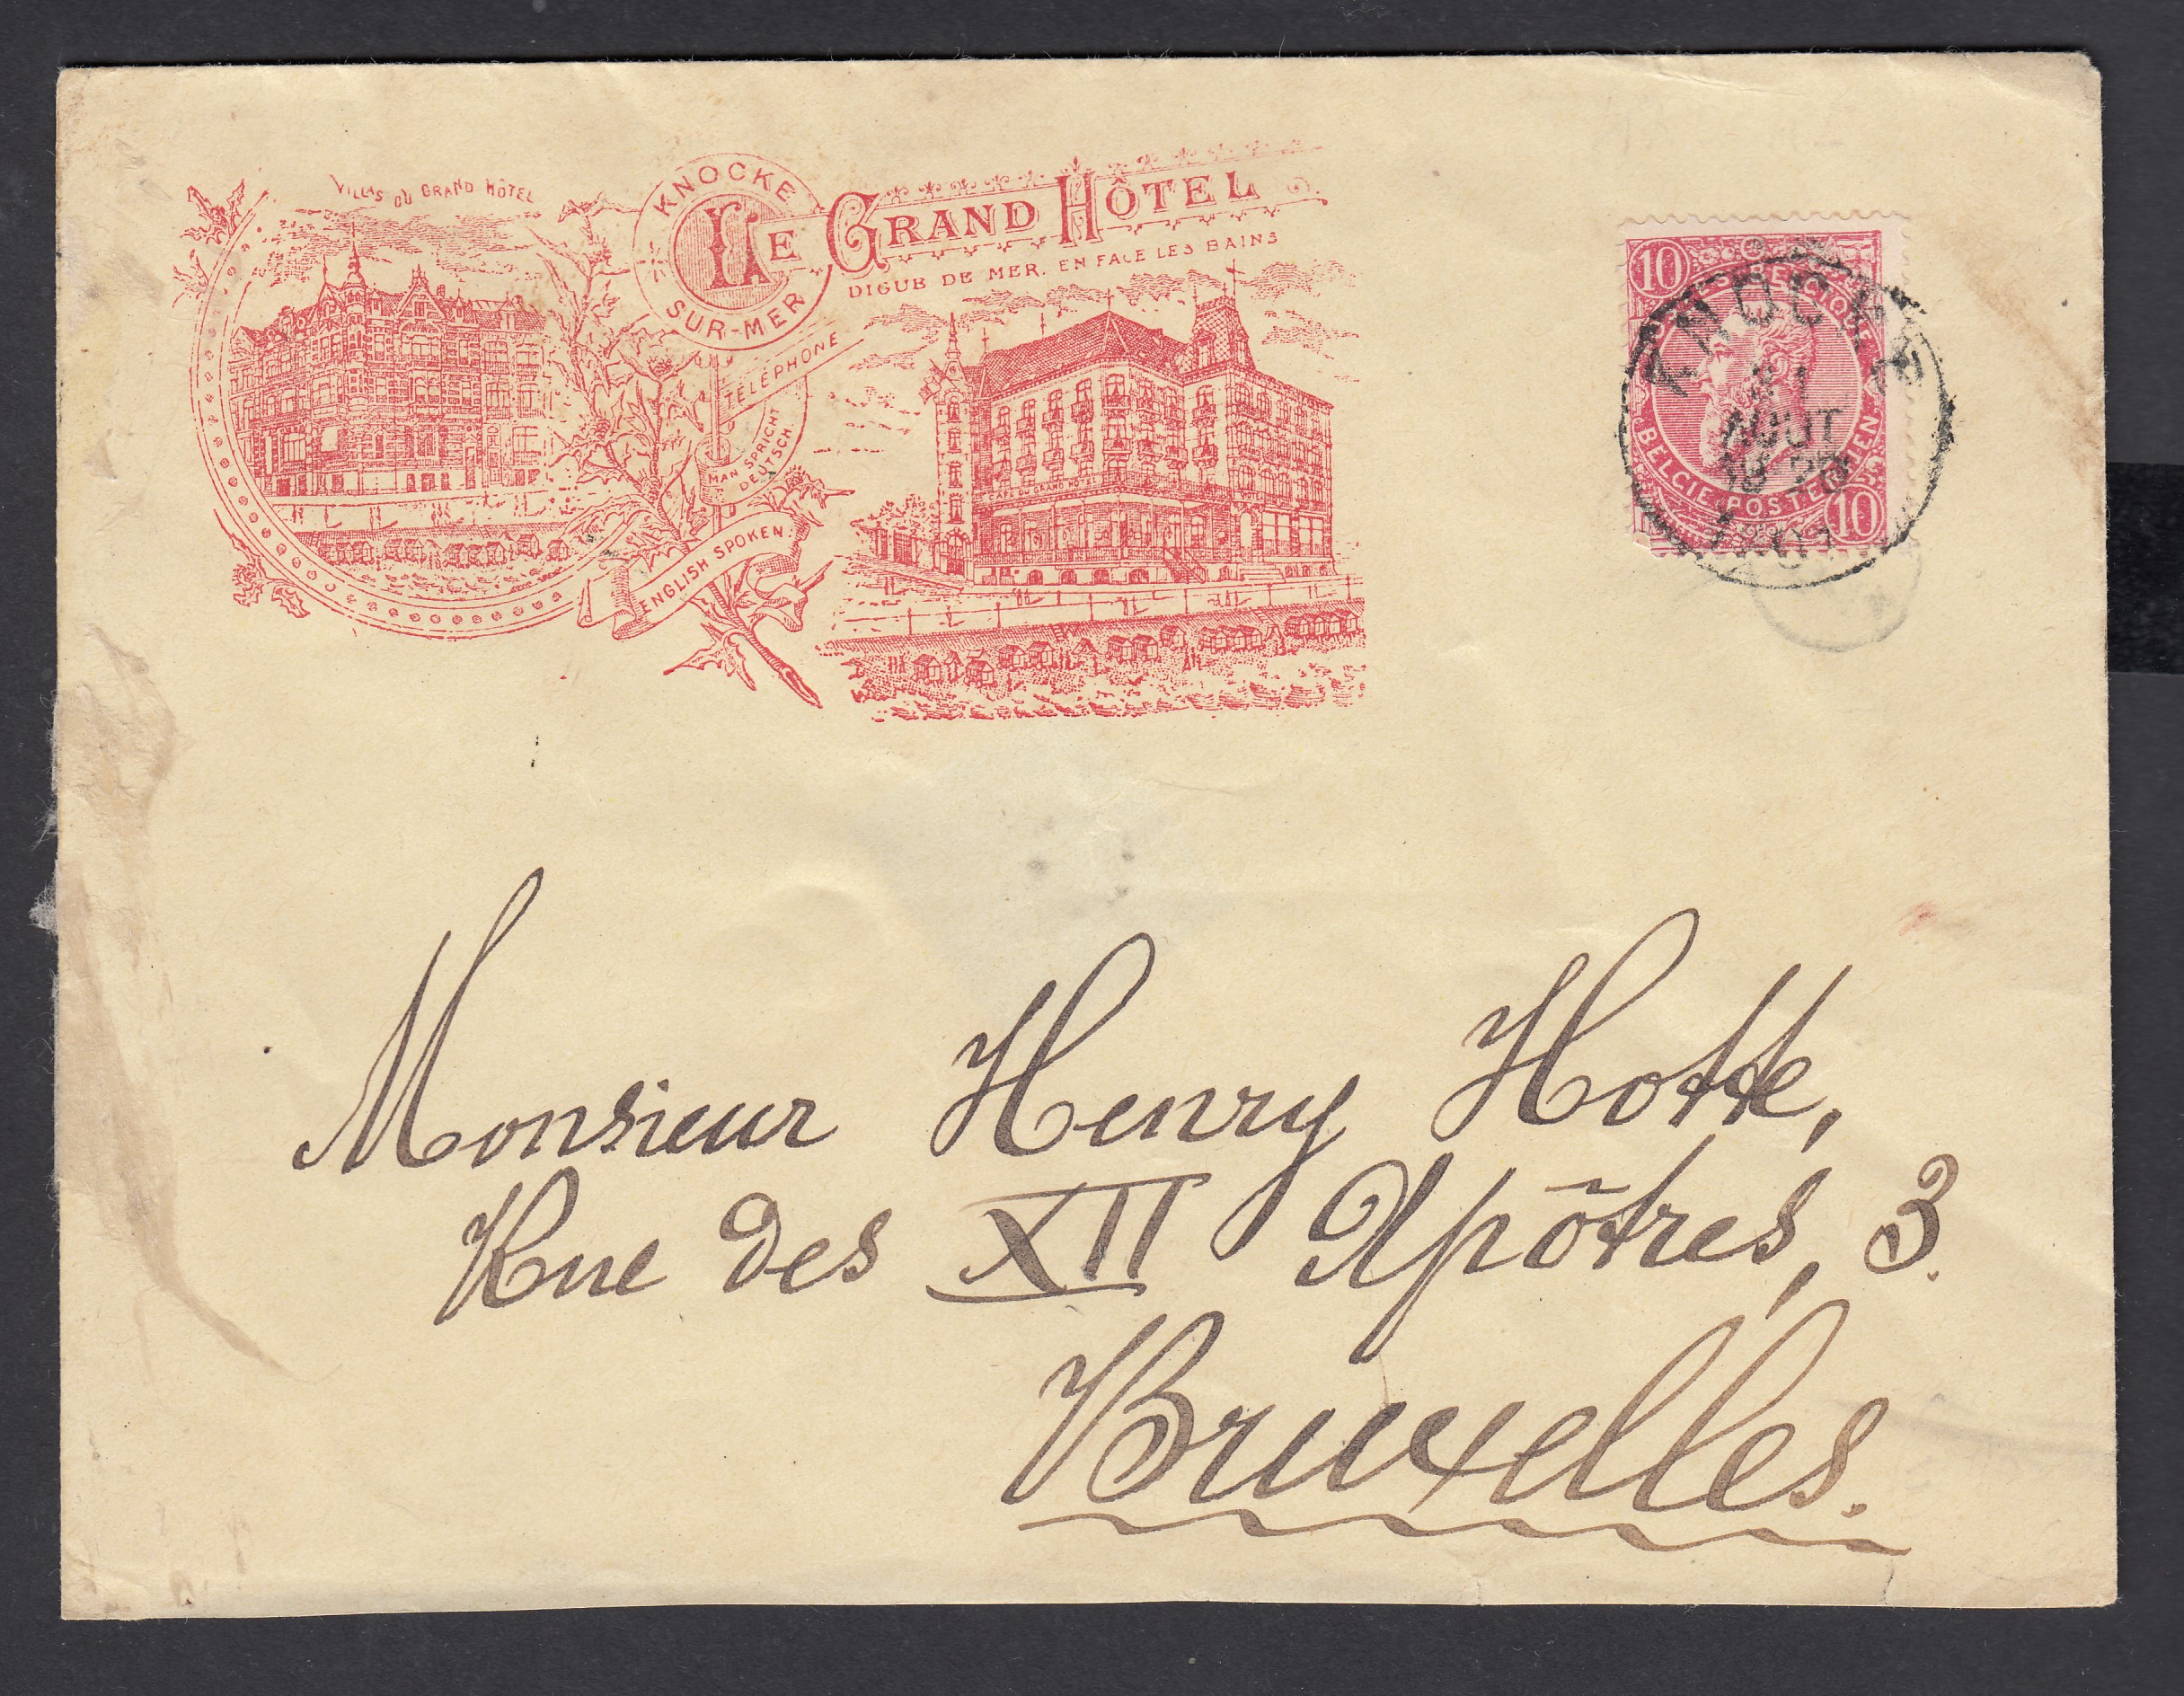 VILLAS DU GRAND HÔTEL
KNOCKE
SUR-MER
LE GRAND HÔTEL
DIGUE DE MER. EN FACE LES BAINS
TÉLÉPHONE
MAN SPRICHT
DEUTSCH.
ENGLISH SPOKEN.
CAFÉ DU GRAND HÔTEL
10
BELGIE POSTERIJEN
10
KNOCKE
AOUT
Monsieur Henry Hotte,
Rue des XII Apôtres, 3.
Bruxelles.